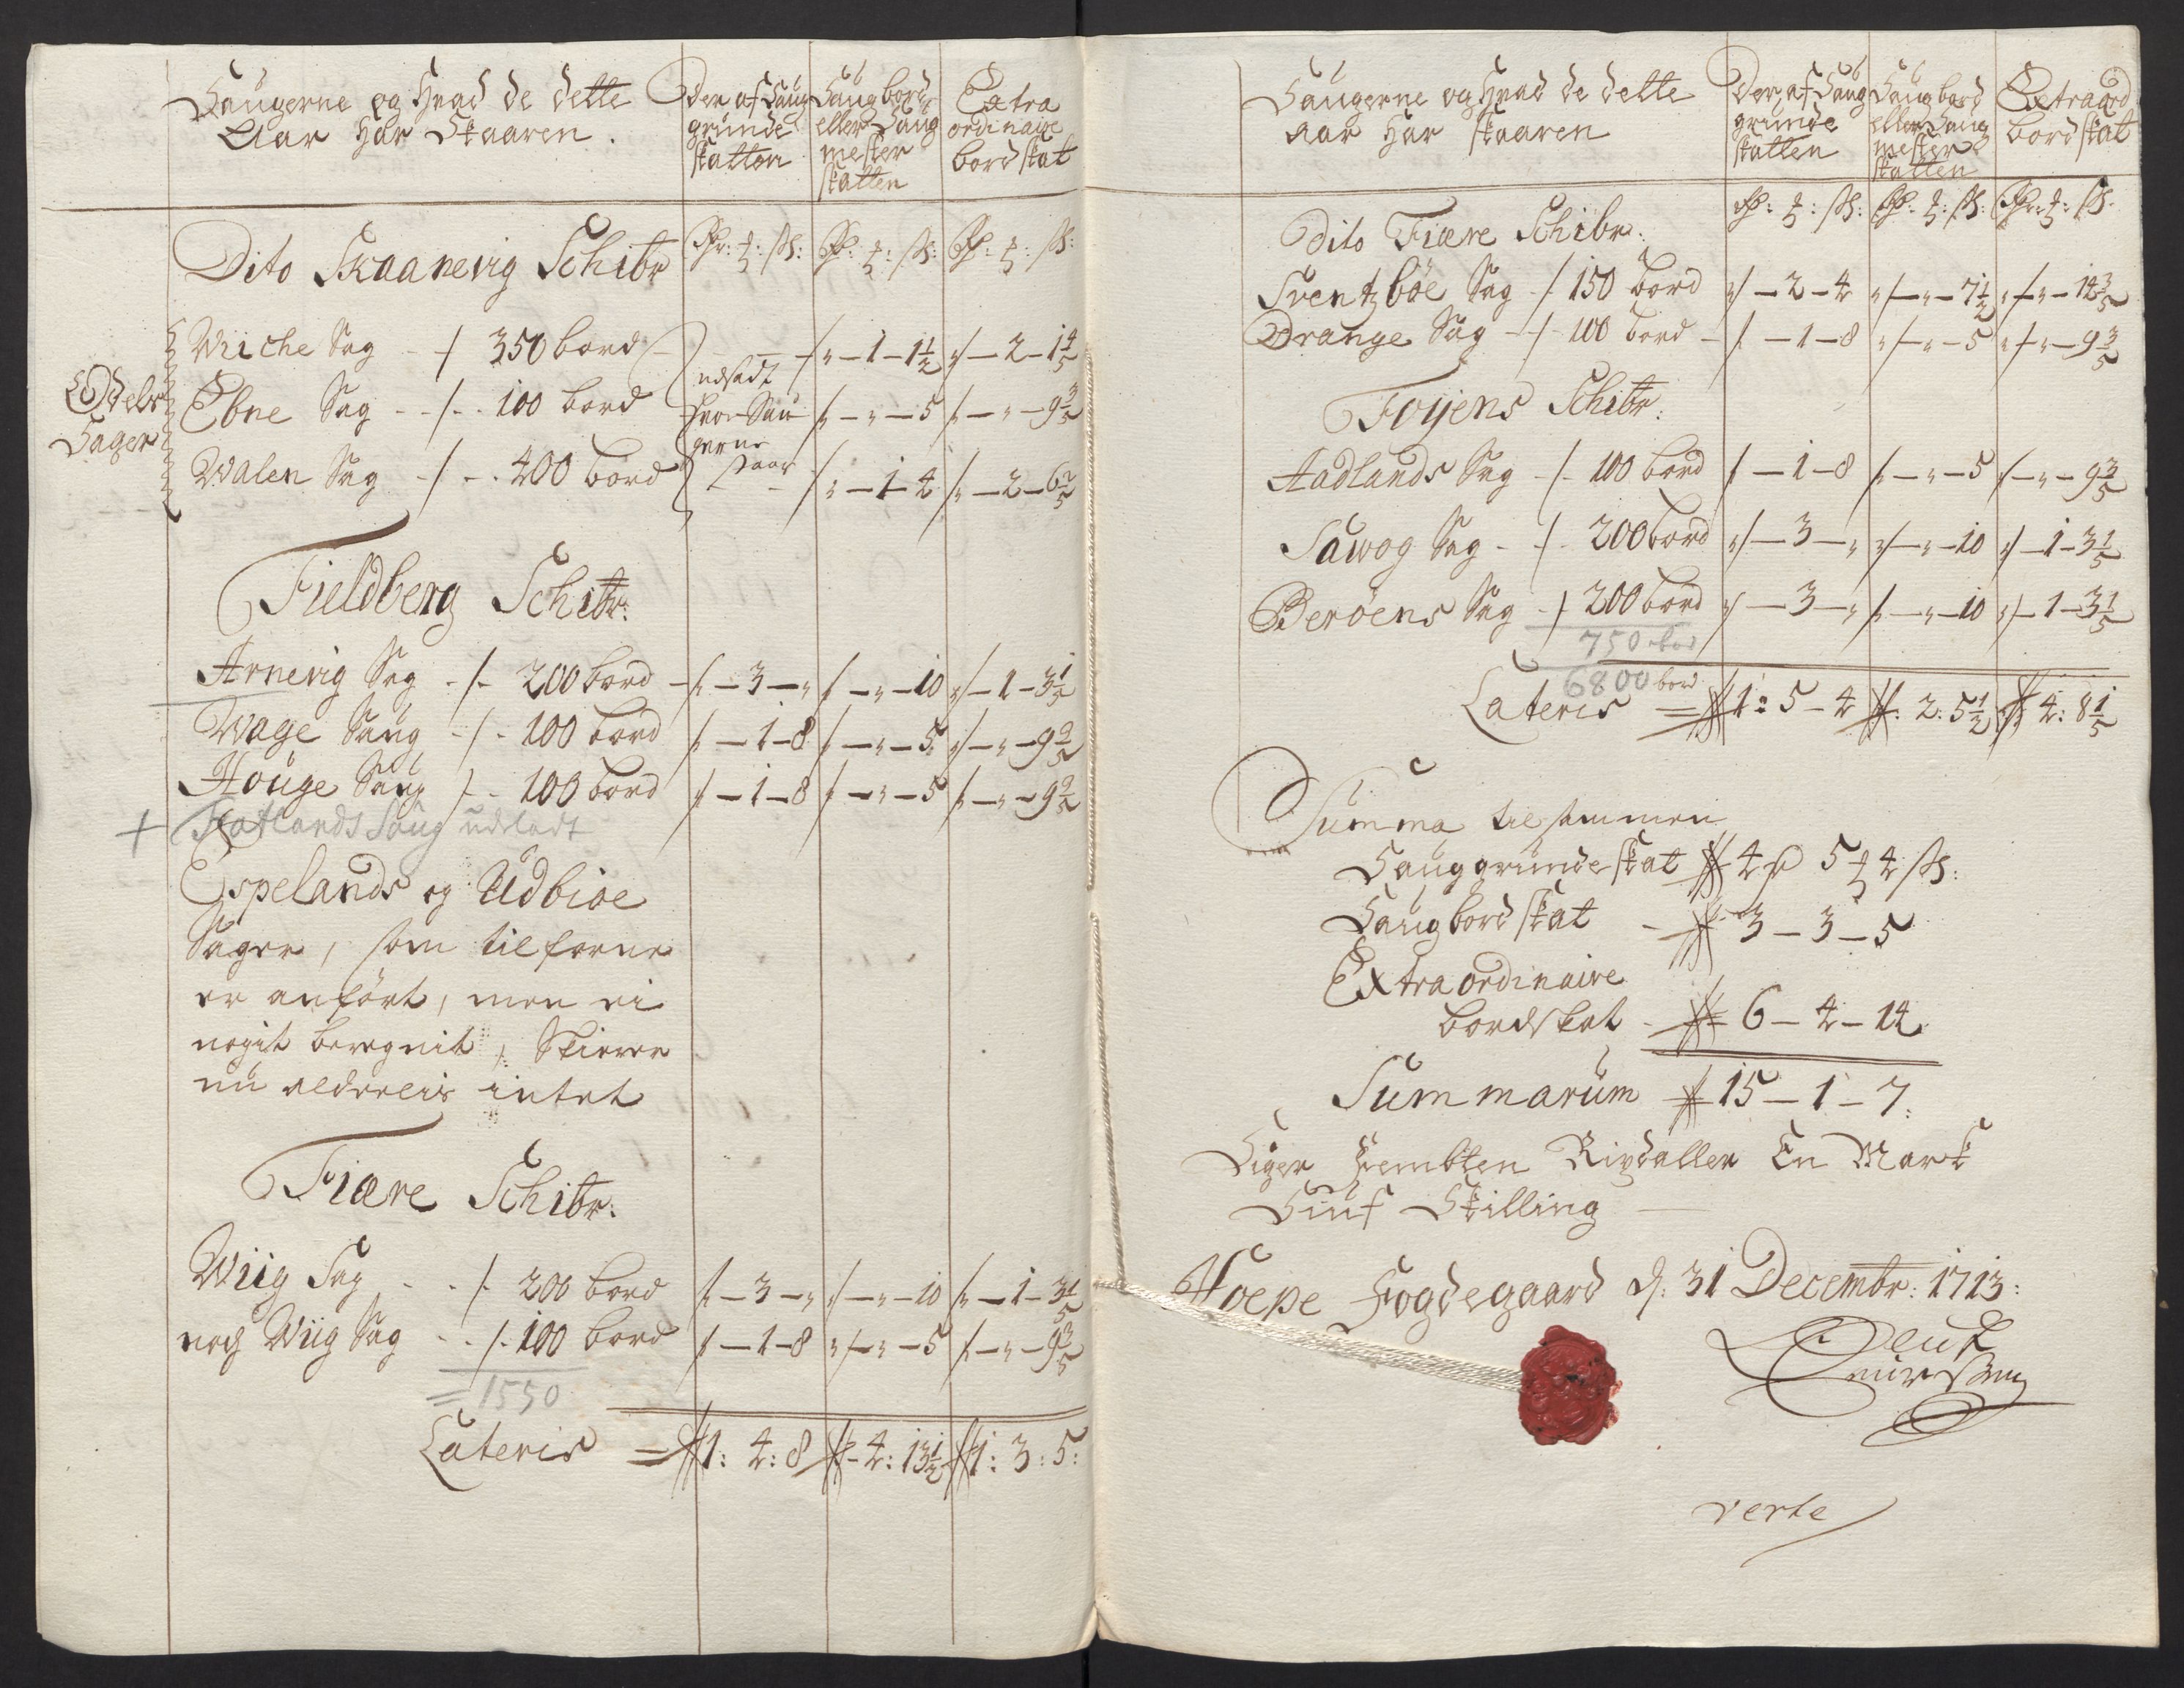 Saugerne og Hvad de dette
Aar har Skaaren.
Der af Saug
grunde
skatten
Saugbord
eller Saug
mester
skatten
Extra
ordinaire
bord skat
Dito Skaanevig Schibr
Rdr: ℳ: ß:
Rdr: ℳ: ß:
Rdr: ℳ: ß:
Odels
Sager
Wiche Sag - / 350 bord
" - 1 - 1½
" - 2 - 1⅘
Ebne Sag - - / - 100 bord
" - " - 5
" - " - 9⅗
Walen Sag - / - 400 bord
" - 1 - 4
" - 2 - 6⅖
udsadt
hvor Sau
gerne
staar
Fieldberg Schibr:
Arnevig Sag - / - 200 bord - " - 3 - " " - " - 10 " - 1 - 3⅕
Wage Saug - / - 100 bord " - 1 - 8 " - " - 5 " - " - 9⅗
Houge Saug / - 100 bord " - 1 - 8 " - " - 5 " - " - 9⅗
+ Hatlands Saug udeladt
Espelands og Udbioe
Sager, som tilforne
er anført, men ei
nogit beregnit, Skierer
nu alderleis intet
Fiære Schibr:
Wiig Sag - - / - 200 bord " - 3 - " " - " - 10 " - 1 - 3⅕
noch Wiig Sag - - / - 100 bord " - 1 - 8 " - " - 5 " - " - 9⅗
= 1550
Lateris = 1: 4: 8 - 4: 13½ 1: 3: 5:
Saugerne og Hvad de dette
Aar har skaaren
Der af Saug
grunde
skatten
Saugbord
eller Saug
mester
skatten
Extraord
bord skat
Rdr: ℳ: ß:
Rdr: ℳ: ß:
Rdr: ℳ: ß:
Dito Fiære Schibr:
Sventzböe Sag - / 150 bord " - 2 - 4 " - " - 7½ " - " - 14⅗
Drange Sag - / - 100 bord - " - 1 - 8 " - " - 5 " - " - 9⅗
Foyens Schibr:
Aadlands Sag - / - 100 bord " - 1 - 8 " - " - 5 " - " - 9⅗
Sawog Sag - / - 200 bord " - 3 - " " - " - 10 " - 1 - 3⅕
Beröens Sag - / 200 bord " - 3 - " " - " - 10 " - 1 - 3⅕
750 bord
6800 bord
Lateris = 1: 5 - 4 2: 5½ 4: 8⅕
Summa tilsammen
Sauggrunde skat 4 5 ℳ 4 ß:
Saugbord skat - 3 - 3 - 5
Extraordinaire
bordskat - 6 - 4 - 14
Summarum 15 - 1 - 7:
Siger Fembten Rixdaller En Mark
Siuf Skilling
Hoepe Fogdegaard d: 31 Decembr: 1713:
verte